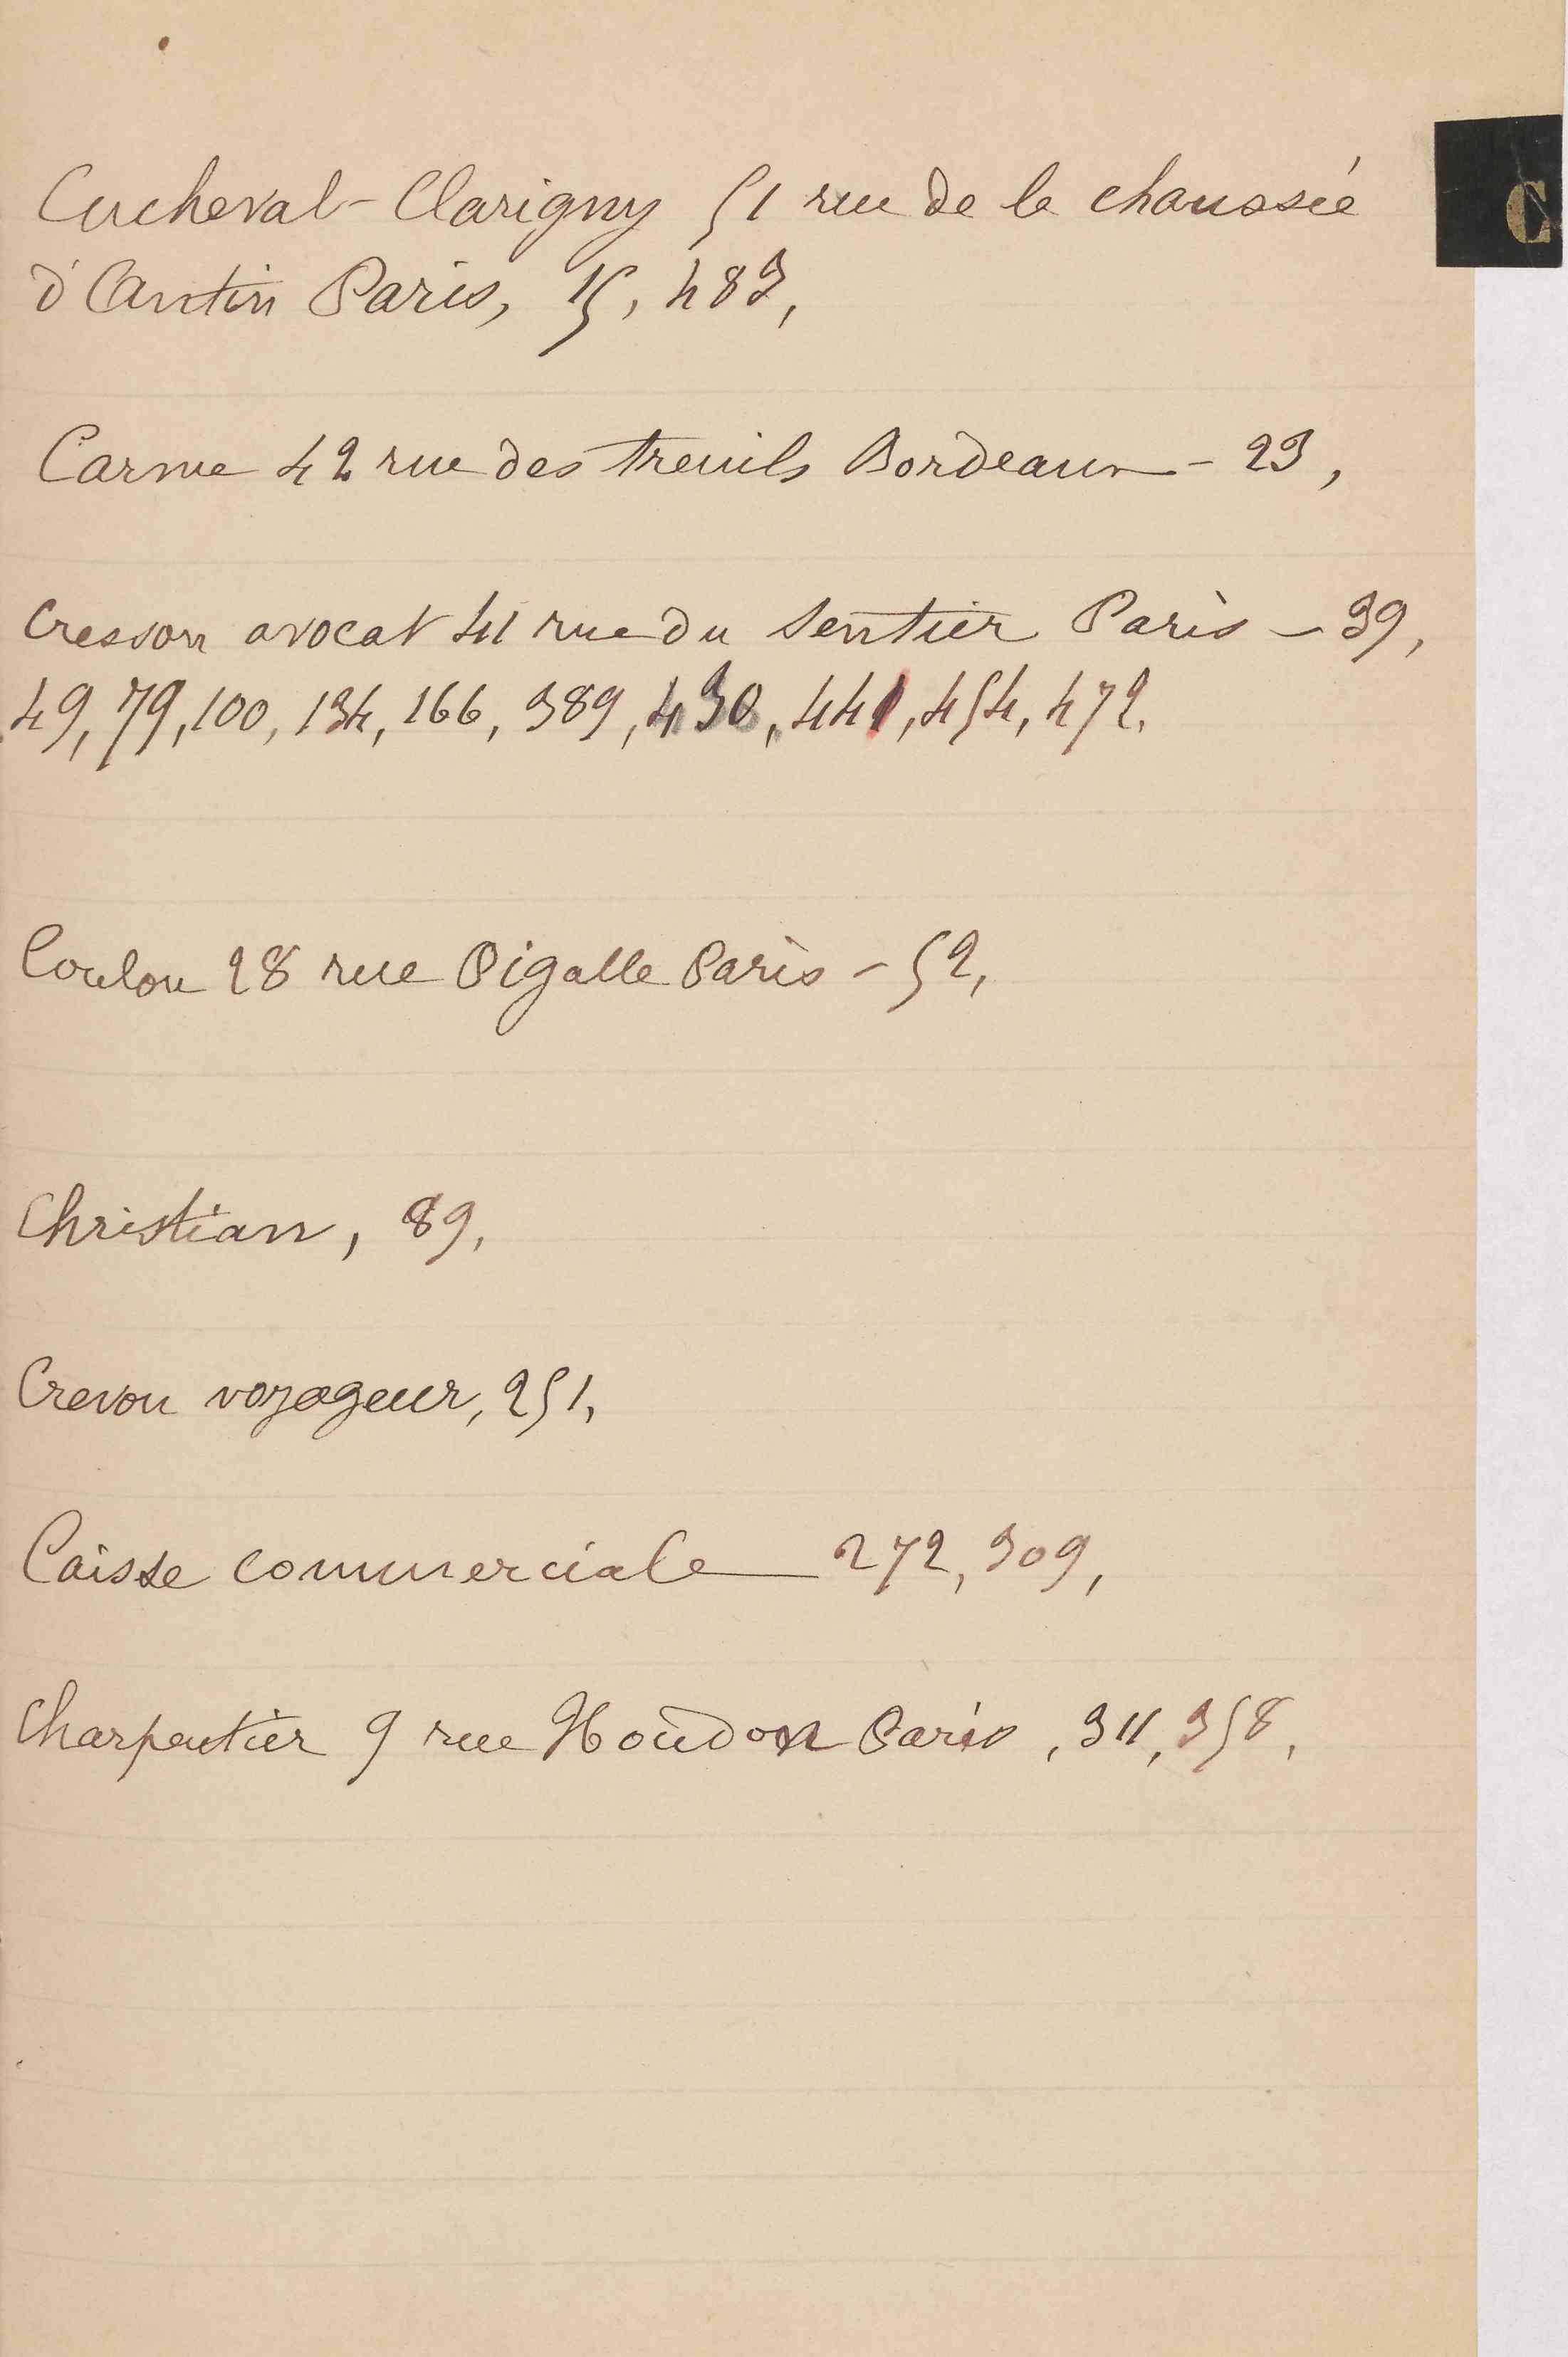 C
Cucheval-Clarigny 51 rue de la chaussée
d'Antin Paris, 15, 483,
Carme 42 rue des Treuils Bordeaux - 23,
Cresson avocat 41 rue du Sentier Paris - 39,
49, 79, 100, 134, 166, 389, 430, 441, 454, 472.
Coulon 28 rue Pigalle Paris - 52,
Christian, 89,
Crevon voyageur, 251,
Caisse commerciale 272, 309,
Charpentier 9 rue Houdon Paris, 311, 358,